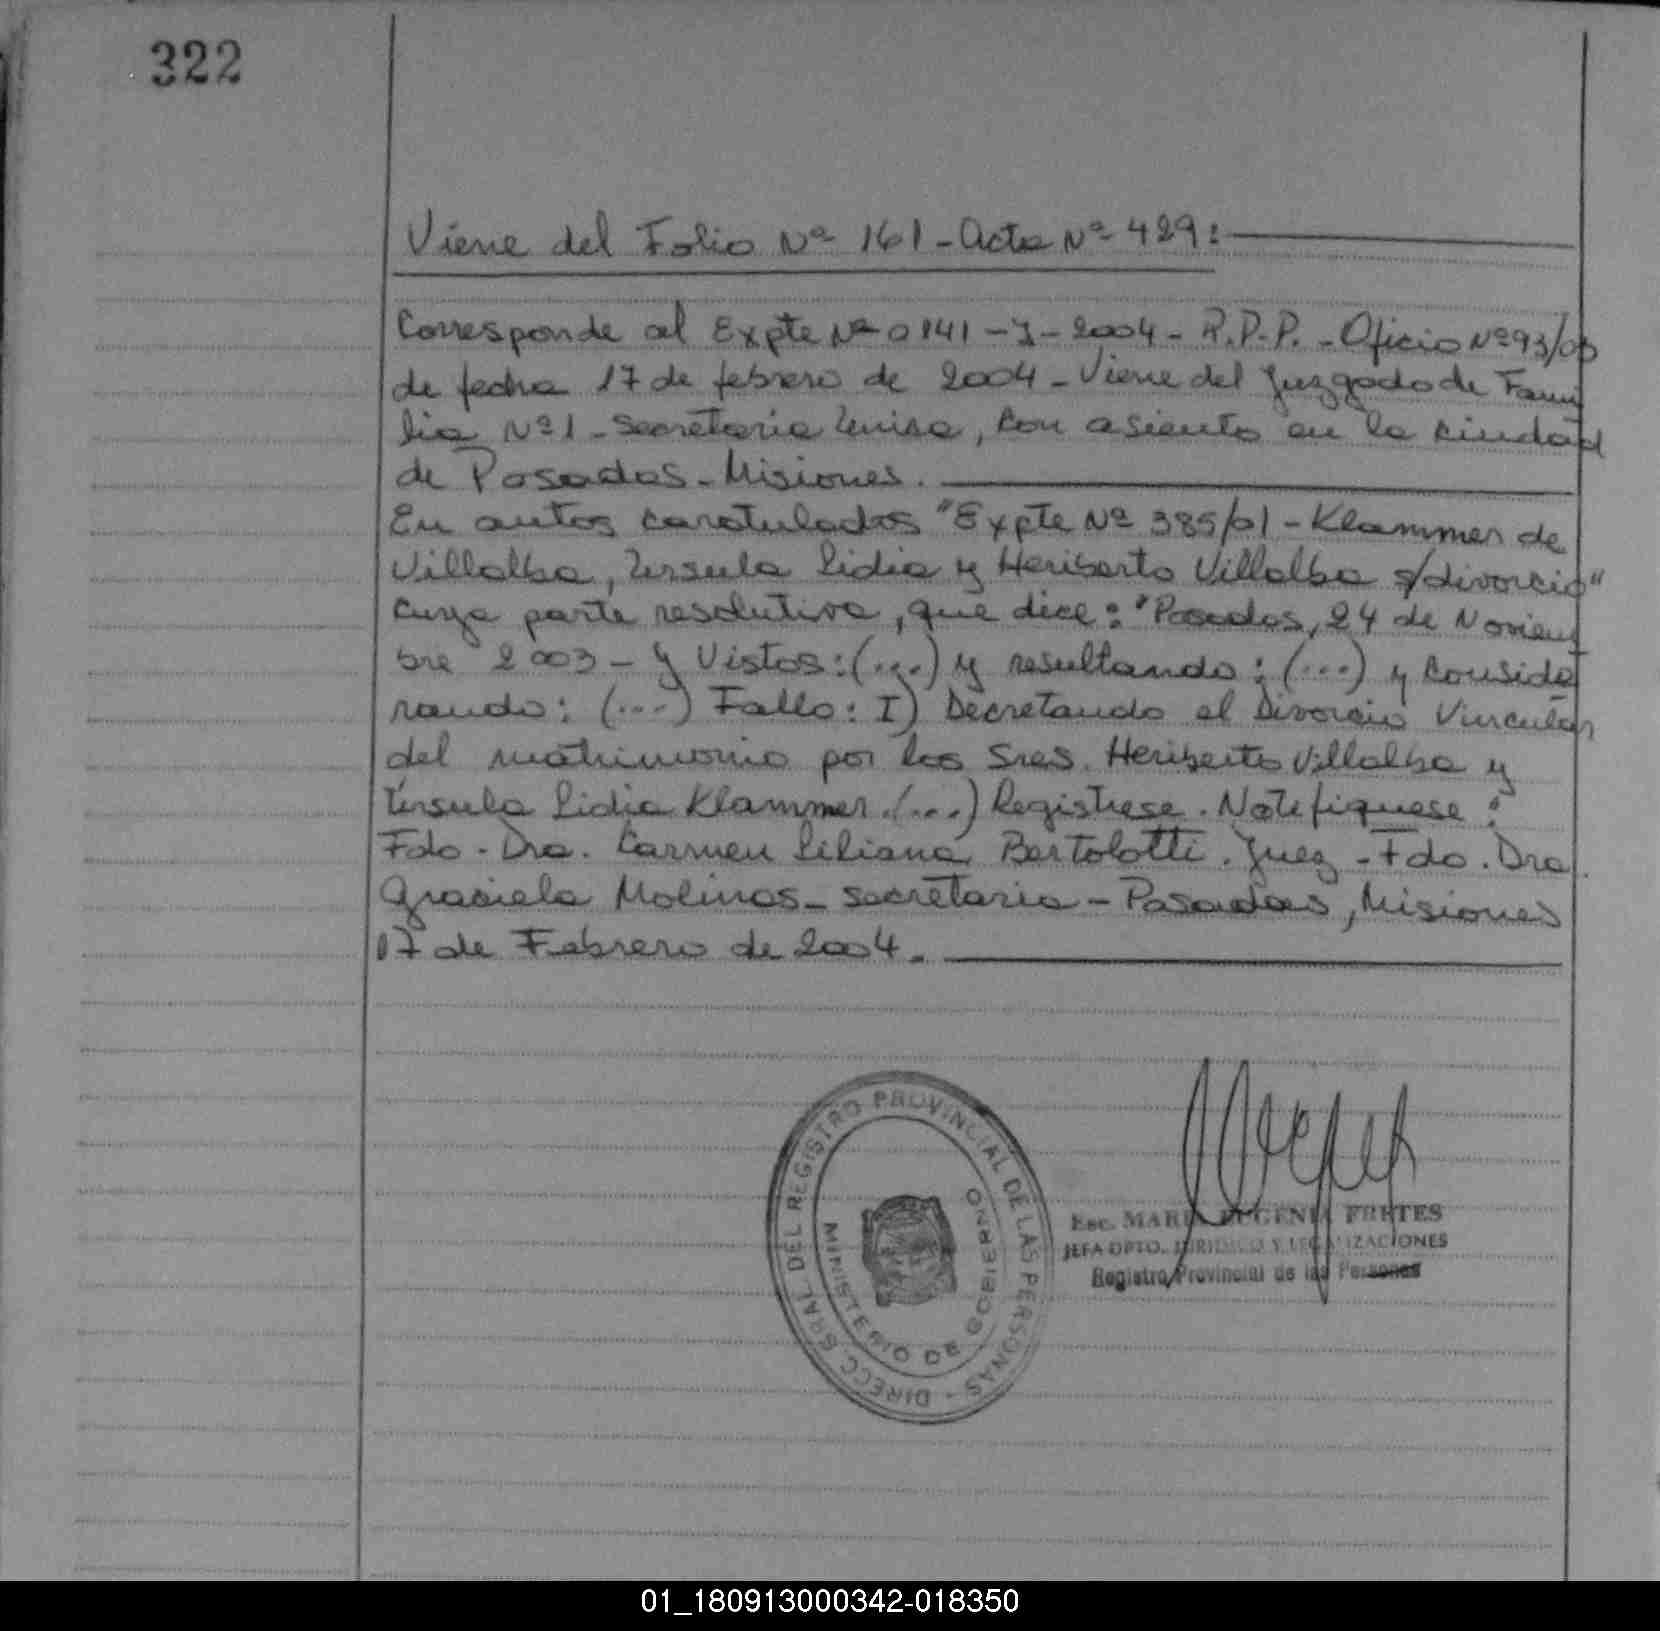 322
Viene del Folio Nº 161 - Acta Nº 429:
Corresponde al Expte Nº 0141 - J - 2004 - R.P.P. - Oficio Nº 93/03
de fecha 17 de febrero de 2004 - Viene del Juzgado de Fami
lia Nº 1 - Secretaria Unica, con asiento en la ciudad
de Posadas - Misiones.
En autos caratulados "Expte Nº 385/01 - Klammer de
Villalba, Ursula Lidia y Heriberto Villalba s/divorcio"
cuya parte resolutiva, que dice: "Posadas, 24 de Noviem
bre 2003 - y Vistos: (...) y resultando: (...) y Conside
rando: (...) Fallo: I) Decretando el Divorcio Vincular
del matrimonio por los Sres. Heriberto Villalba y
Ursula Lidia Klammer. (...) Registrese. Notifiquese:
Fdo. Dra. Carmen Liliana Bertolotti. Juez - Fdo. Dra
Graciela Molinas - secretaria - Posadas, Misiones
17 de Febrero de 2004.
DIRECC. GRAL. DEL REGISTRO PROVINCIAL DE LAS PERSONAS -
MINISTERIO DE GOBIERNO
Esc. MARIA EUGENIA FRETES
JEFA DPTO. JURIDICO Y LEGALIZACIONES
Registro Provincial de las Personas
01_180913000342-018350